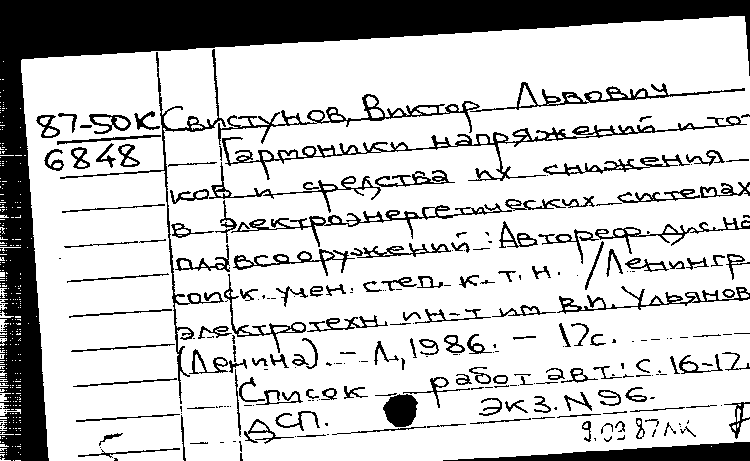 87-50К Свистунов, Виктор Львович
6848 Гармоники напряжений и то-
ков и средства их снижения
в электроэнергетических системах
плавсооружений: Автореф. дис. на
соиск. учен. степ. к. т. н. / Ленингр.
электротехн. ин-т им В.И. Ульянов
(Ленина). – Л., 1986. – 17с.
Список работ авт.: с. 16-17.
ДСП. ЭКЗ. N 96.
9.03 87 ЛК